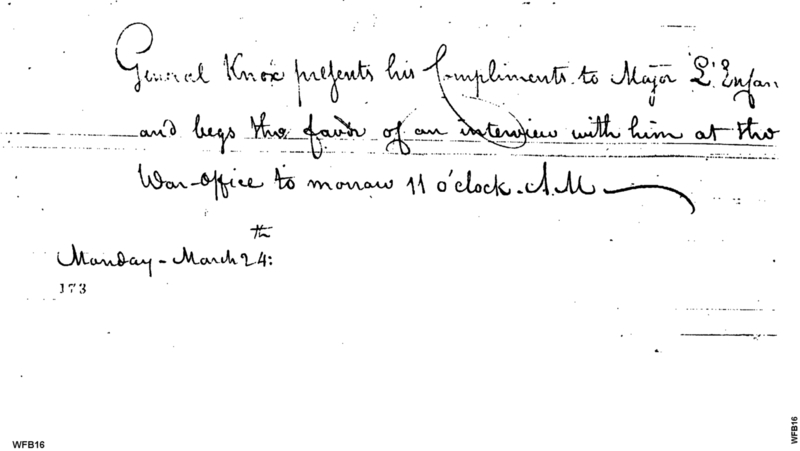 General Knox presents his Compliments to Major L'Enfan
and begs the favor of an interview with him at the
War-office to morrow 11 o'clock. A.M
Monday - March 24th:
173
WFB16
WFB16